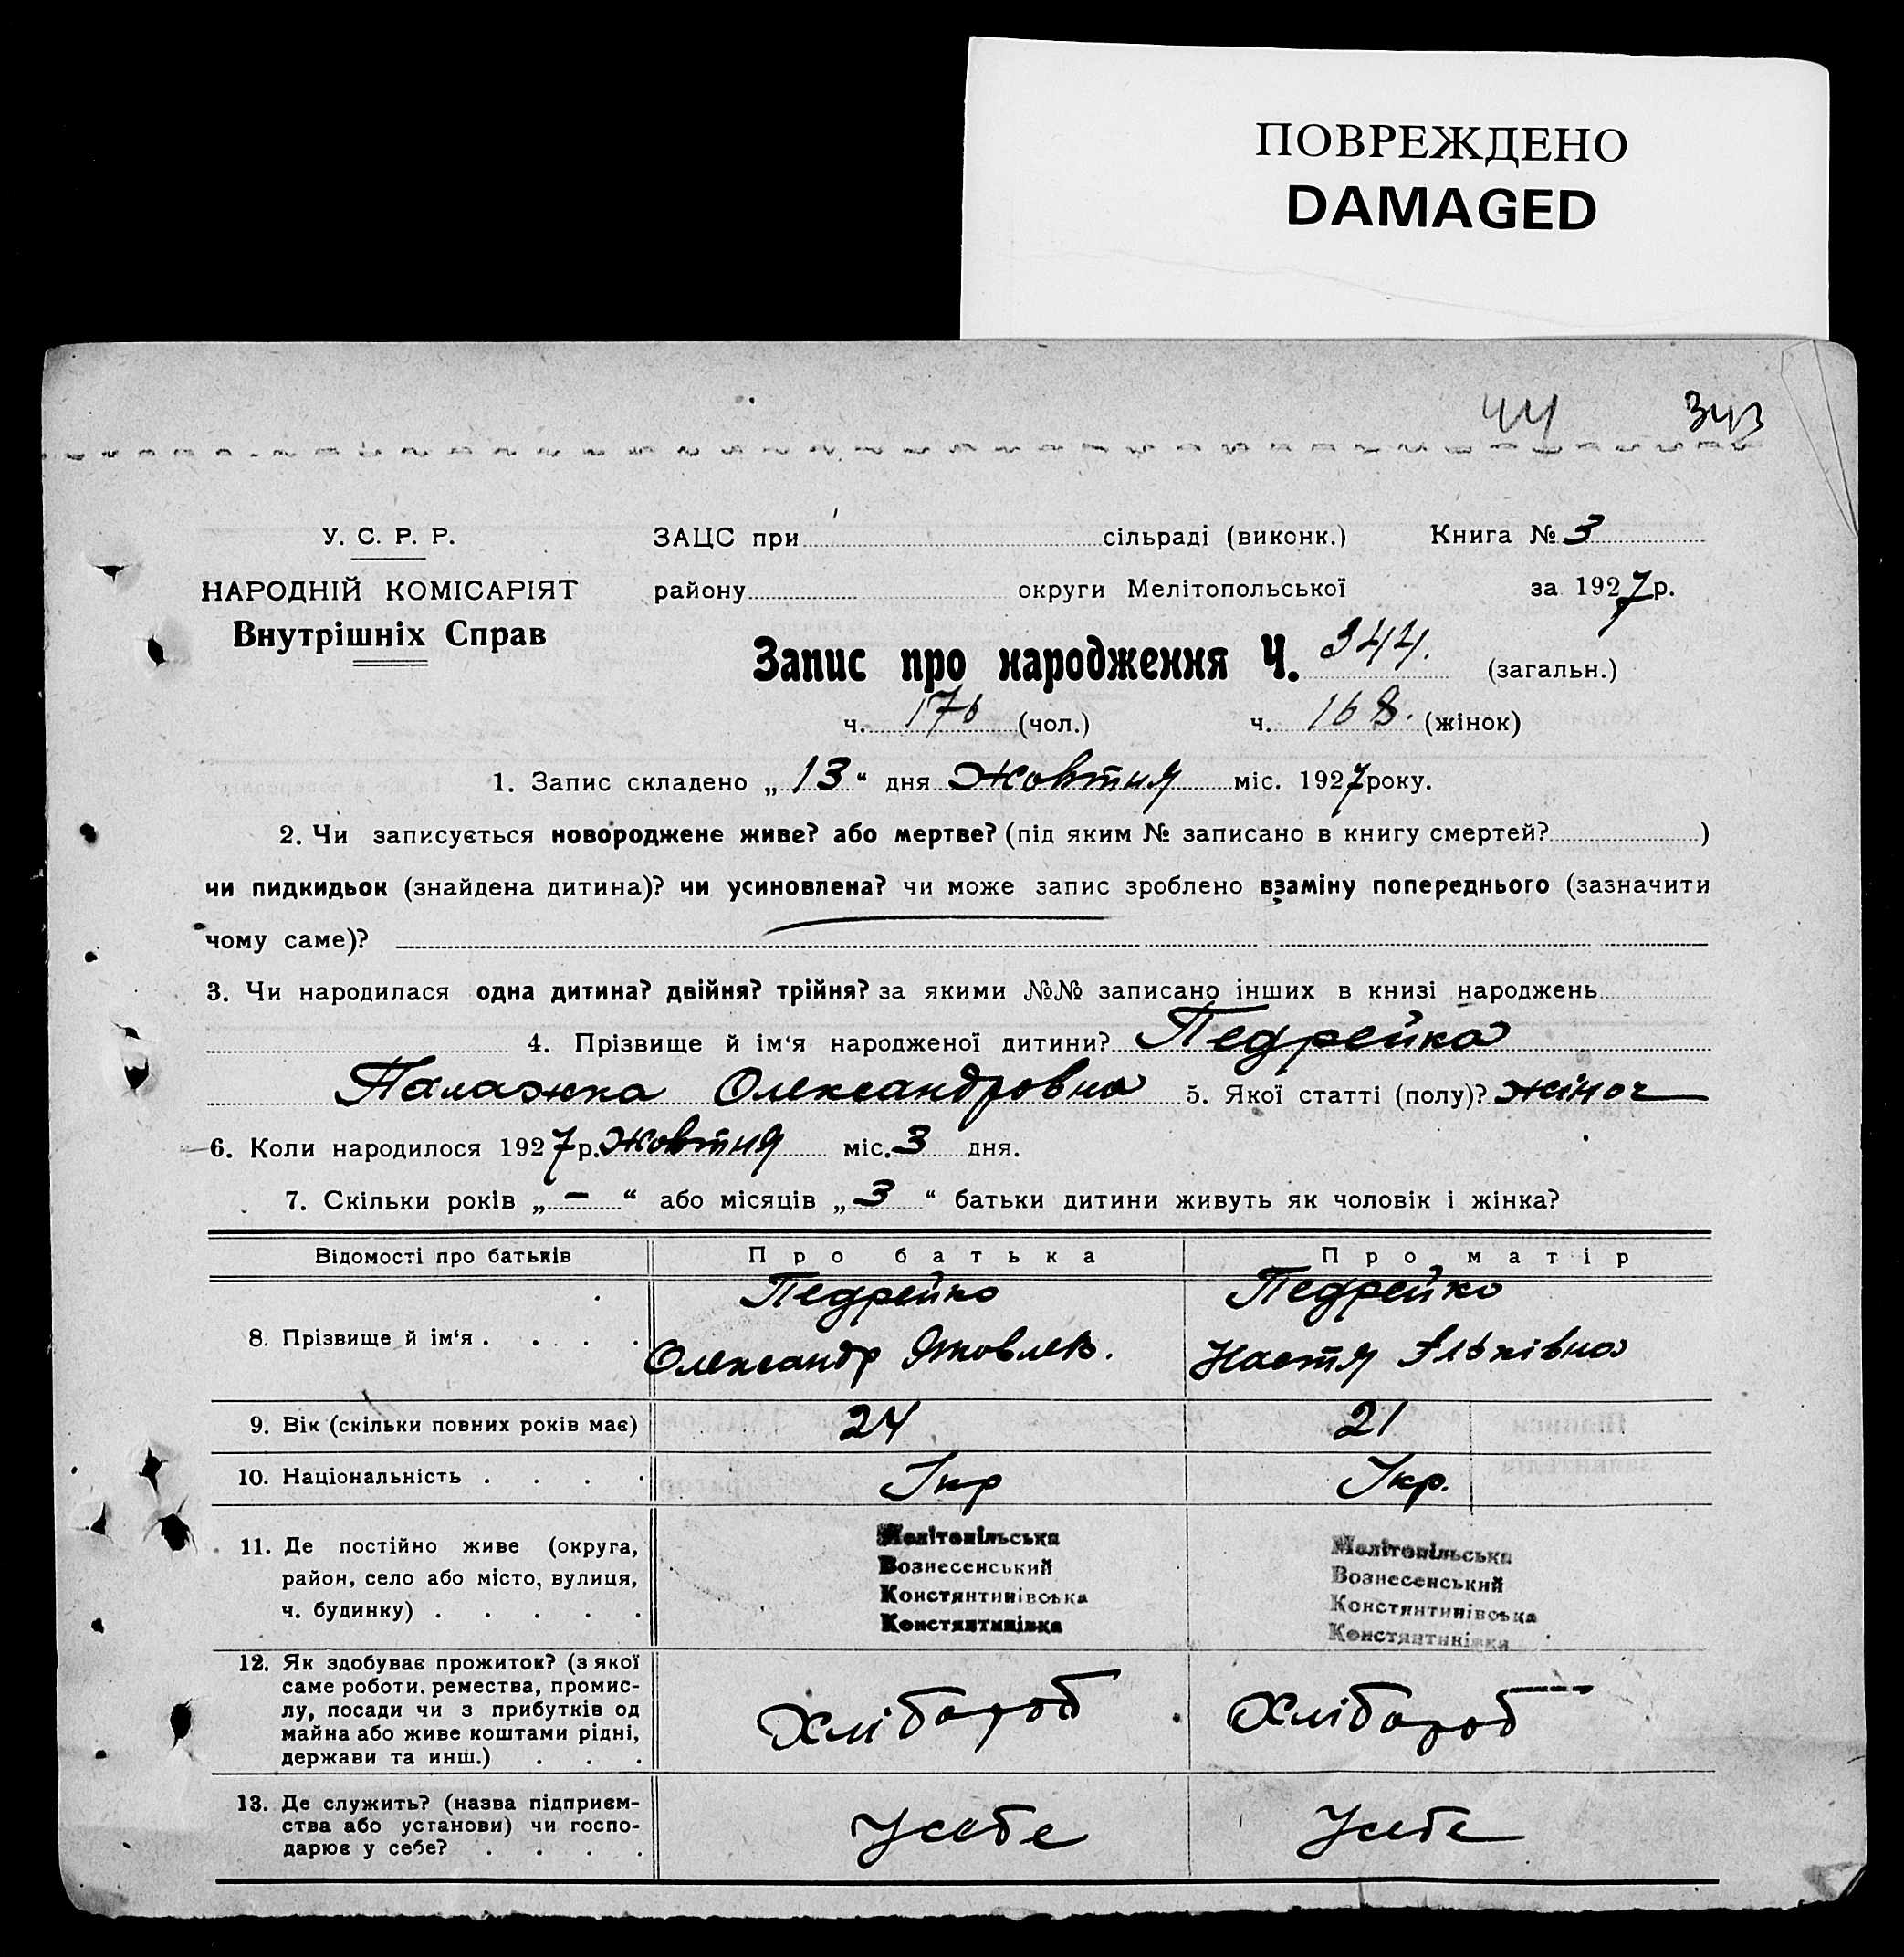 ПОВРЕЖДЕНО
DAMAGED
44 343
У. С. Р. Р. ЗАЦС при сільраді (виконк.) Книга № 3
НАРОДНІЙ КОМІСАРІЯТ району округи Мелітопольської за 1927 р.
Внутрішніх Справ
Запис про народження Ч. 344. (загальн.)
ч. 176 (чол.) ч. 168. (жінок)
1. Запис складено „ 13 “ дня Жовтня міс. 1927 року.
2. Чи записується новороджене живе? або мертве? (під яким № записано в книгу смертей? )
чи пидкидьок (знайдена дитина)? чи усиновлена? чи може запис зроблено взаміну попереднього (зазначити
чому саме)?
3. Чи народилася одна дитина? двійня? трійня? за якими №№ записано інших в книзі народжень
4. Прізвище й ім‘я народженої дитини? Педрейко
Палажка Олександровна 5. Якої статті (полу)? жіноч
6. Коли народилося 1927 р. Жовтня міс. 3 дня.
7. Скільки років „ — “ або місяців „ 3 “ батьки дитини живуть як чоловік і жінка?
Відомості про батьків Про батька Про матір
Педрейко Педрейко
8. Прізвище й ім‘я . . . . .
Олександр Яковлев. Настя
9. Вік (скільки повних років має) 24 21
10. Національність . . . . Укр Укр.
11. Де постійно живе (округа, Мелітопільська Мелітопільська
район, село або місто, вулиця, Вознесенський Вознесенський
ч. будинку) . . . . . Констянтинівська Констянтинівська
Констянтинівка Констянтинівка
12. Як здобуває прожиток? (з якої
саме роботи. ремества, промис-
лу, посади чи з прибутків од Хлібороб Хлібороб
майна або живе коштами рідні,
держави та инш.) . . .
13. Де служить? (назва підприєм-
ства або установи) чи госпо- Усебе Усебе
дарює у себе? . . . .